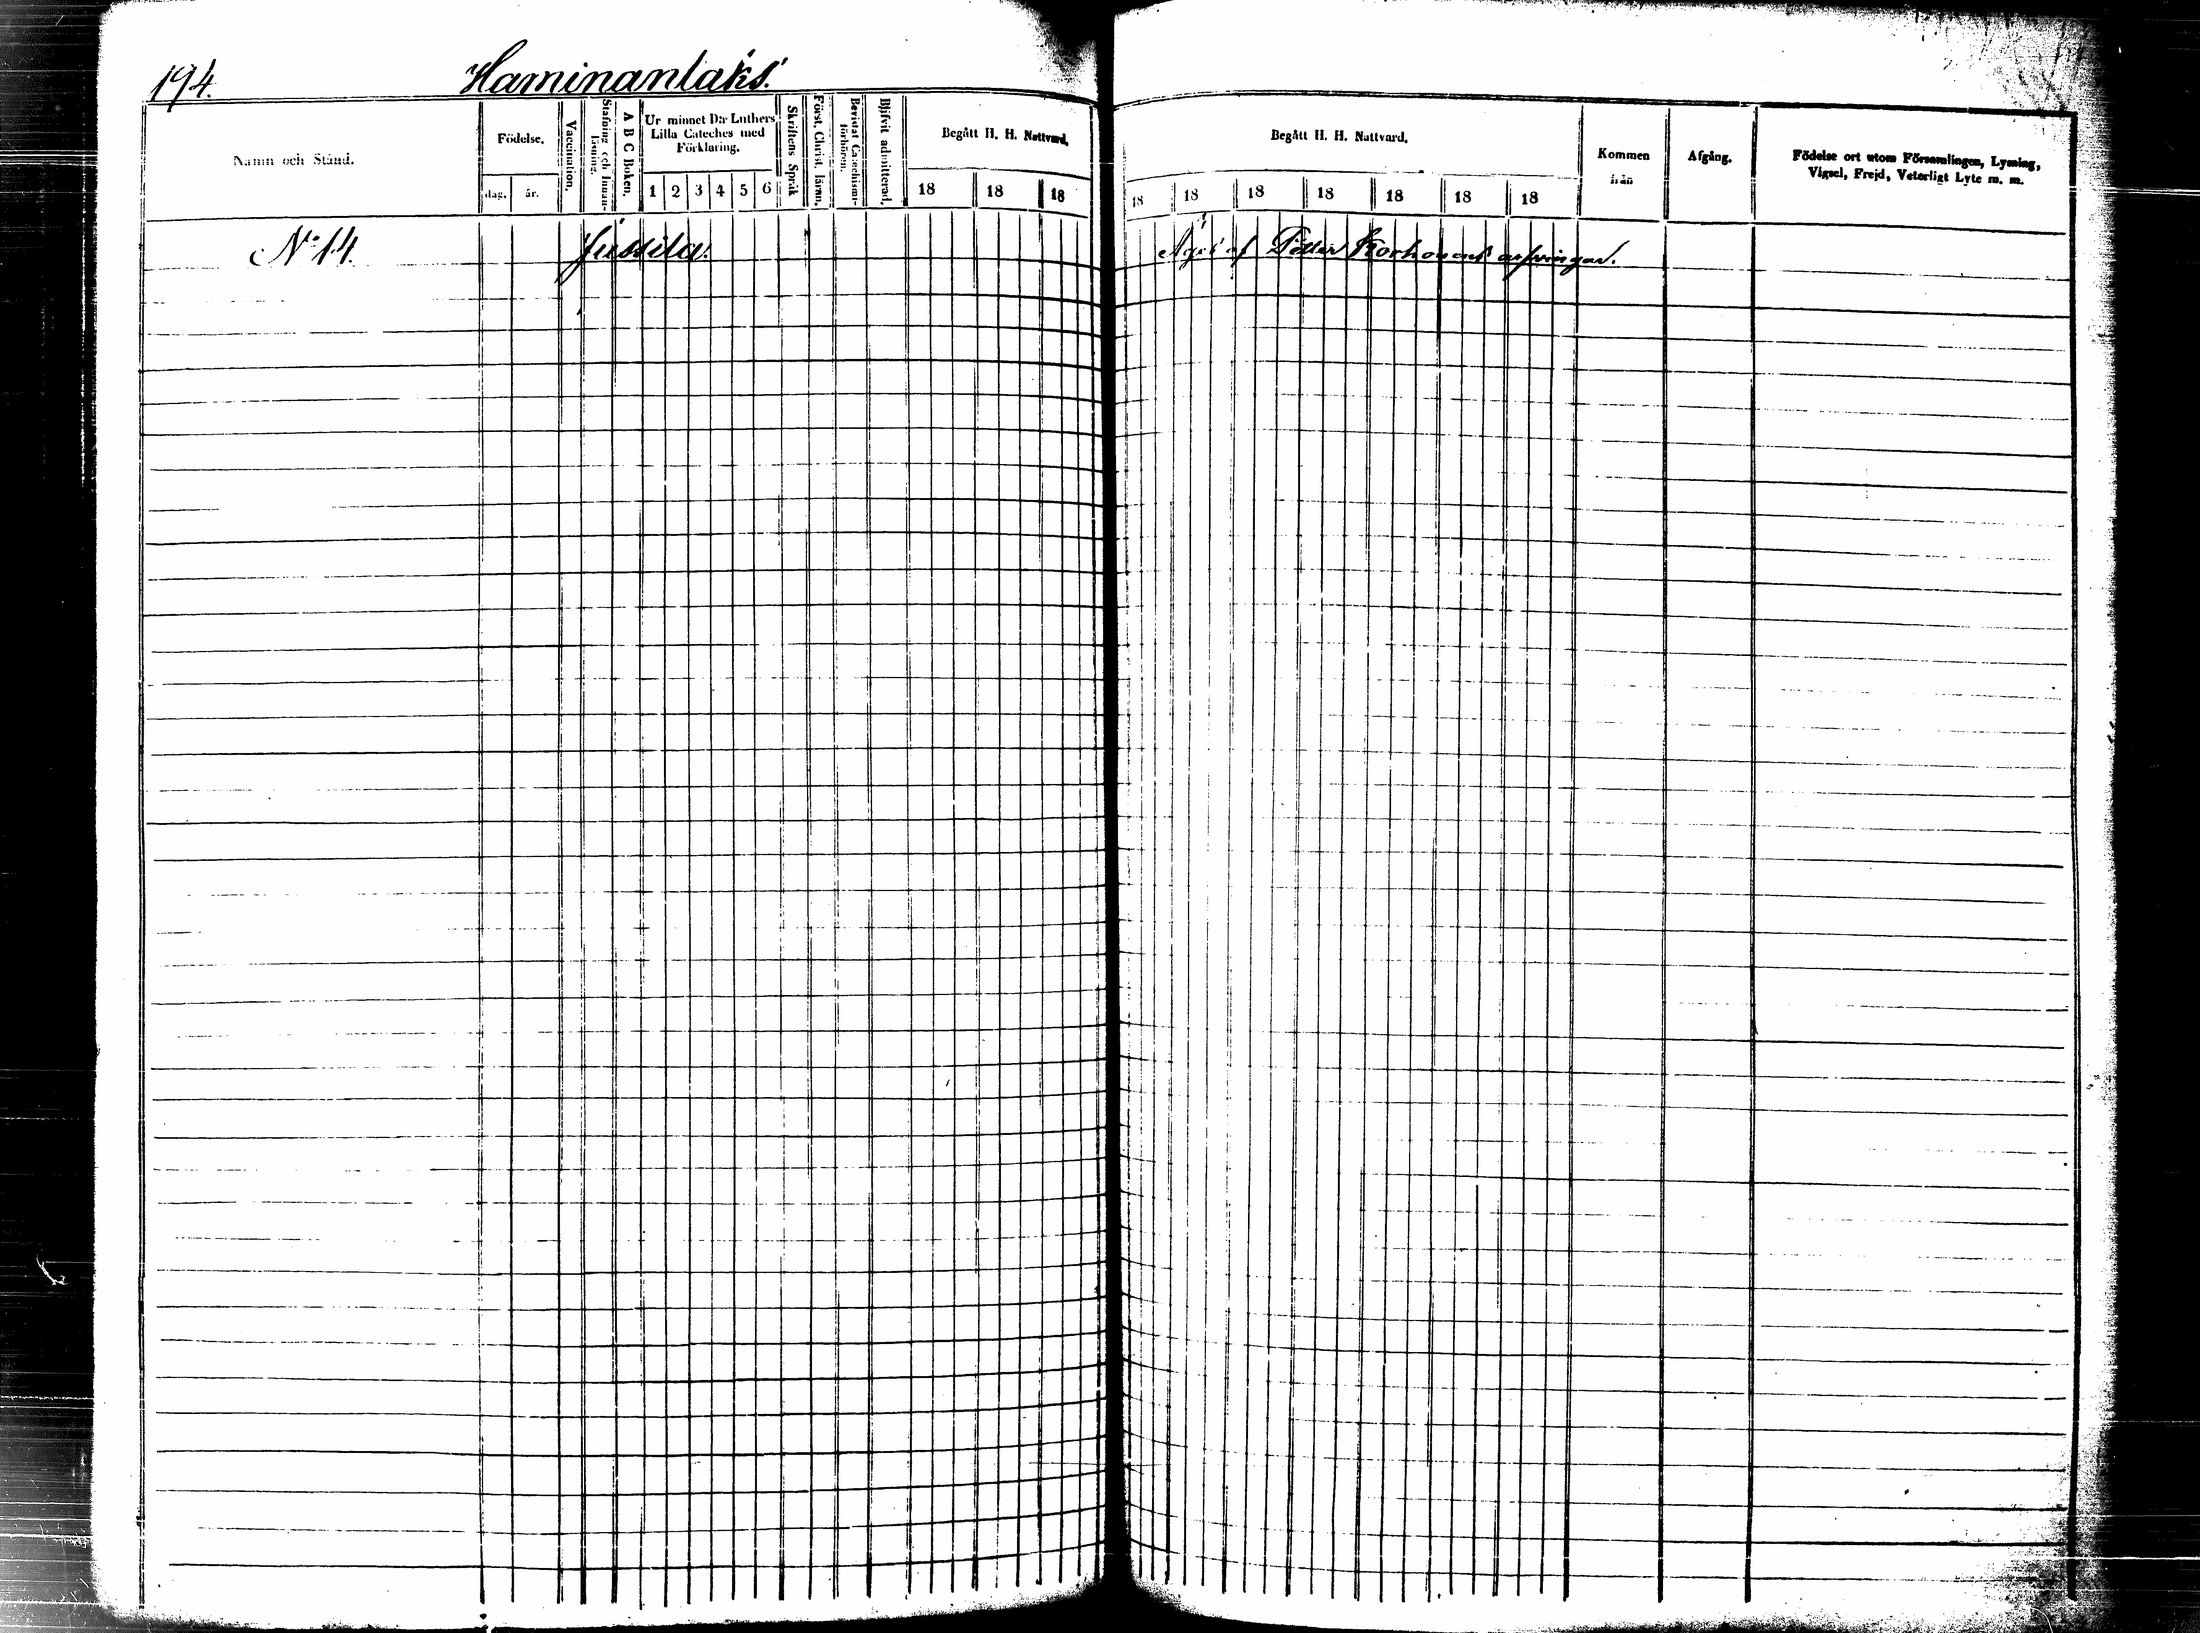 194. Haminanlaks.
Namn och Stånd.
Födelse.
dag. år.
Vaccination.
Stafning och Innan-
läsning.
A B C Boken.
Ur minnet D:r Luthers
Lilla Cateches med
Förklaring.
1 2 3 4 5 6
Skriftens Språk
Först. Christ. läran.
Bevistat Catechismi-
förhören.
Blifvit admitterad.
Begått H. H. Nattvard.
18 18 18
Begått H. H. Nattvard.
18 18 18 18 18 18 18
Kommen
från
Afgång.
Födelse ort utom Församlingen, Lysning,
Vigsel, Frejd, Veterligt Lyte m. m.
No 14. Jussila. Äges af Petter Korhonens arfvingar.